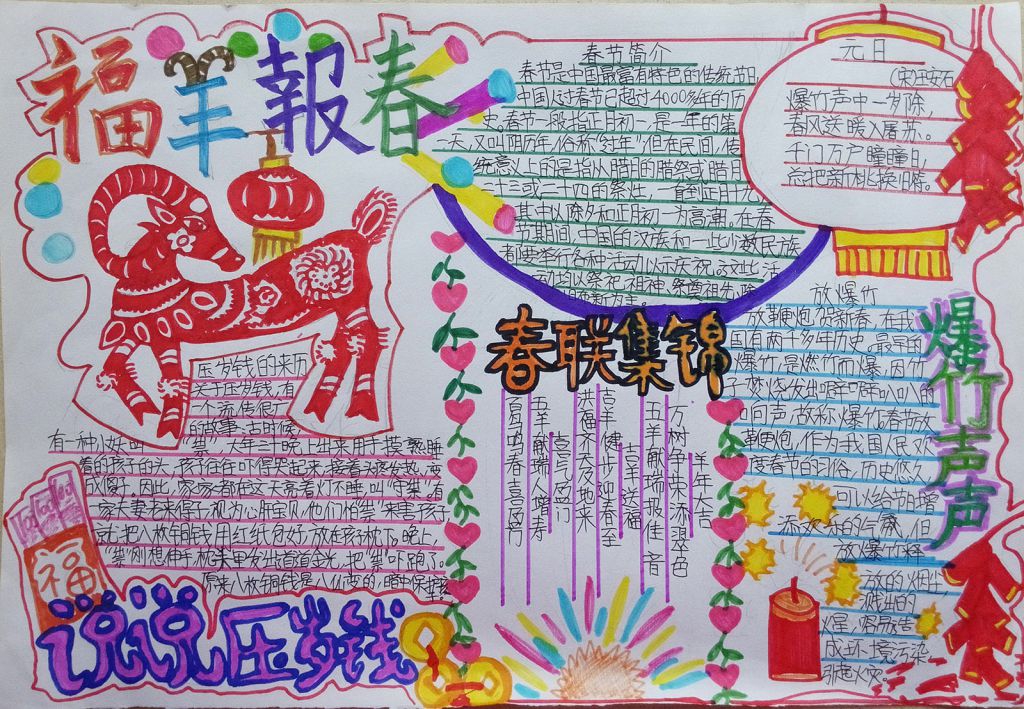 福羊報春
春节简介
春节是中国最富有特色的传统节日,
中国人过春节已超过4000多年的历
史。春节一般指正月初一,是一年的第
一天,又叫阴历年,俗称"过年"但在民间,传
统意义上的是指从腊月的腊祭或腊月
二十三或二十四的祭灶,一直到正月
其中以除夕和正月初一为高潮。在春
节期间,中国的汉族和一些少数民族
都要举行各种活动以示庆祝。
动均以祭祀祖神、祭奠祖先、除
元日
(宋)王安石
爆竹声中一岁除,
春风送暖入屠苏。
千门万户瞳瞳日,
总把新桃换旧符。
压岁钱的来历
关于压岁钱,有
一个流传很广
的故事。古时候
有一种小妖叫"祟"大年三十晚上出来用手摸熟睡
着的孩子的头,孩子往往吓得哭起来,接着头疼发热,变
成傻子。因此,家家都在这天亮着灯不睡,叫"守祟"。有
一家夫妻老来得子,视为心肝宝贝,他们怕"祟"来害孩子,
就把八枚铜钱用红纸包好,放在孩子枕下。晚上,
"祟"刚想伸手,枕头里发出道道金光,把"祟"吓跑了。
原来八枚铜钱是八仙变的,暗中保护孩
福
说说压岁钱
春联集锦
羊年大吉
万树争荣添翠色
五羊献瑞报佳音
吉羊送福
吉羊健步迎春至
洪福齐天及地来
喜气盈门
五羊献瑞人增寿
百鸟鸣春喜盈门
爆竹声声
放爆竹
放鞭炮贺新春,在我
国有两千多年历史。最早的
爆竹,是燃竹而爆,因竹
子焚烧发出噼噼叭叭的
响声,故称爆竹。春节放
鞭炮,作为我国人民欢
度春节的习俗,历史悠久
可以给节日增
添欢乐的气氛,但
放爆竹释
放的烟尘,
溅出的
火星,容易造
成环境污染,
引起火灾。